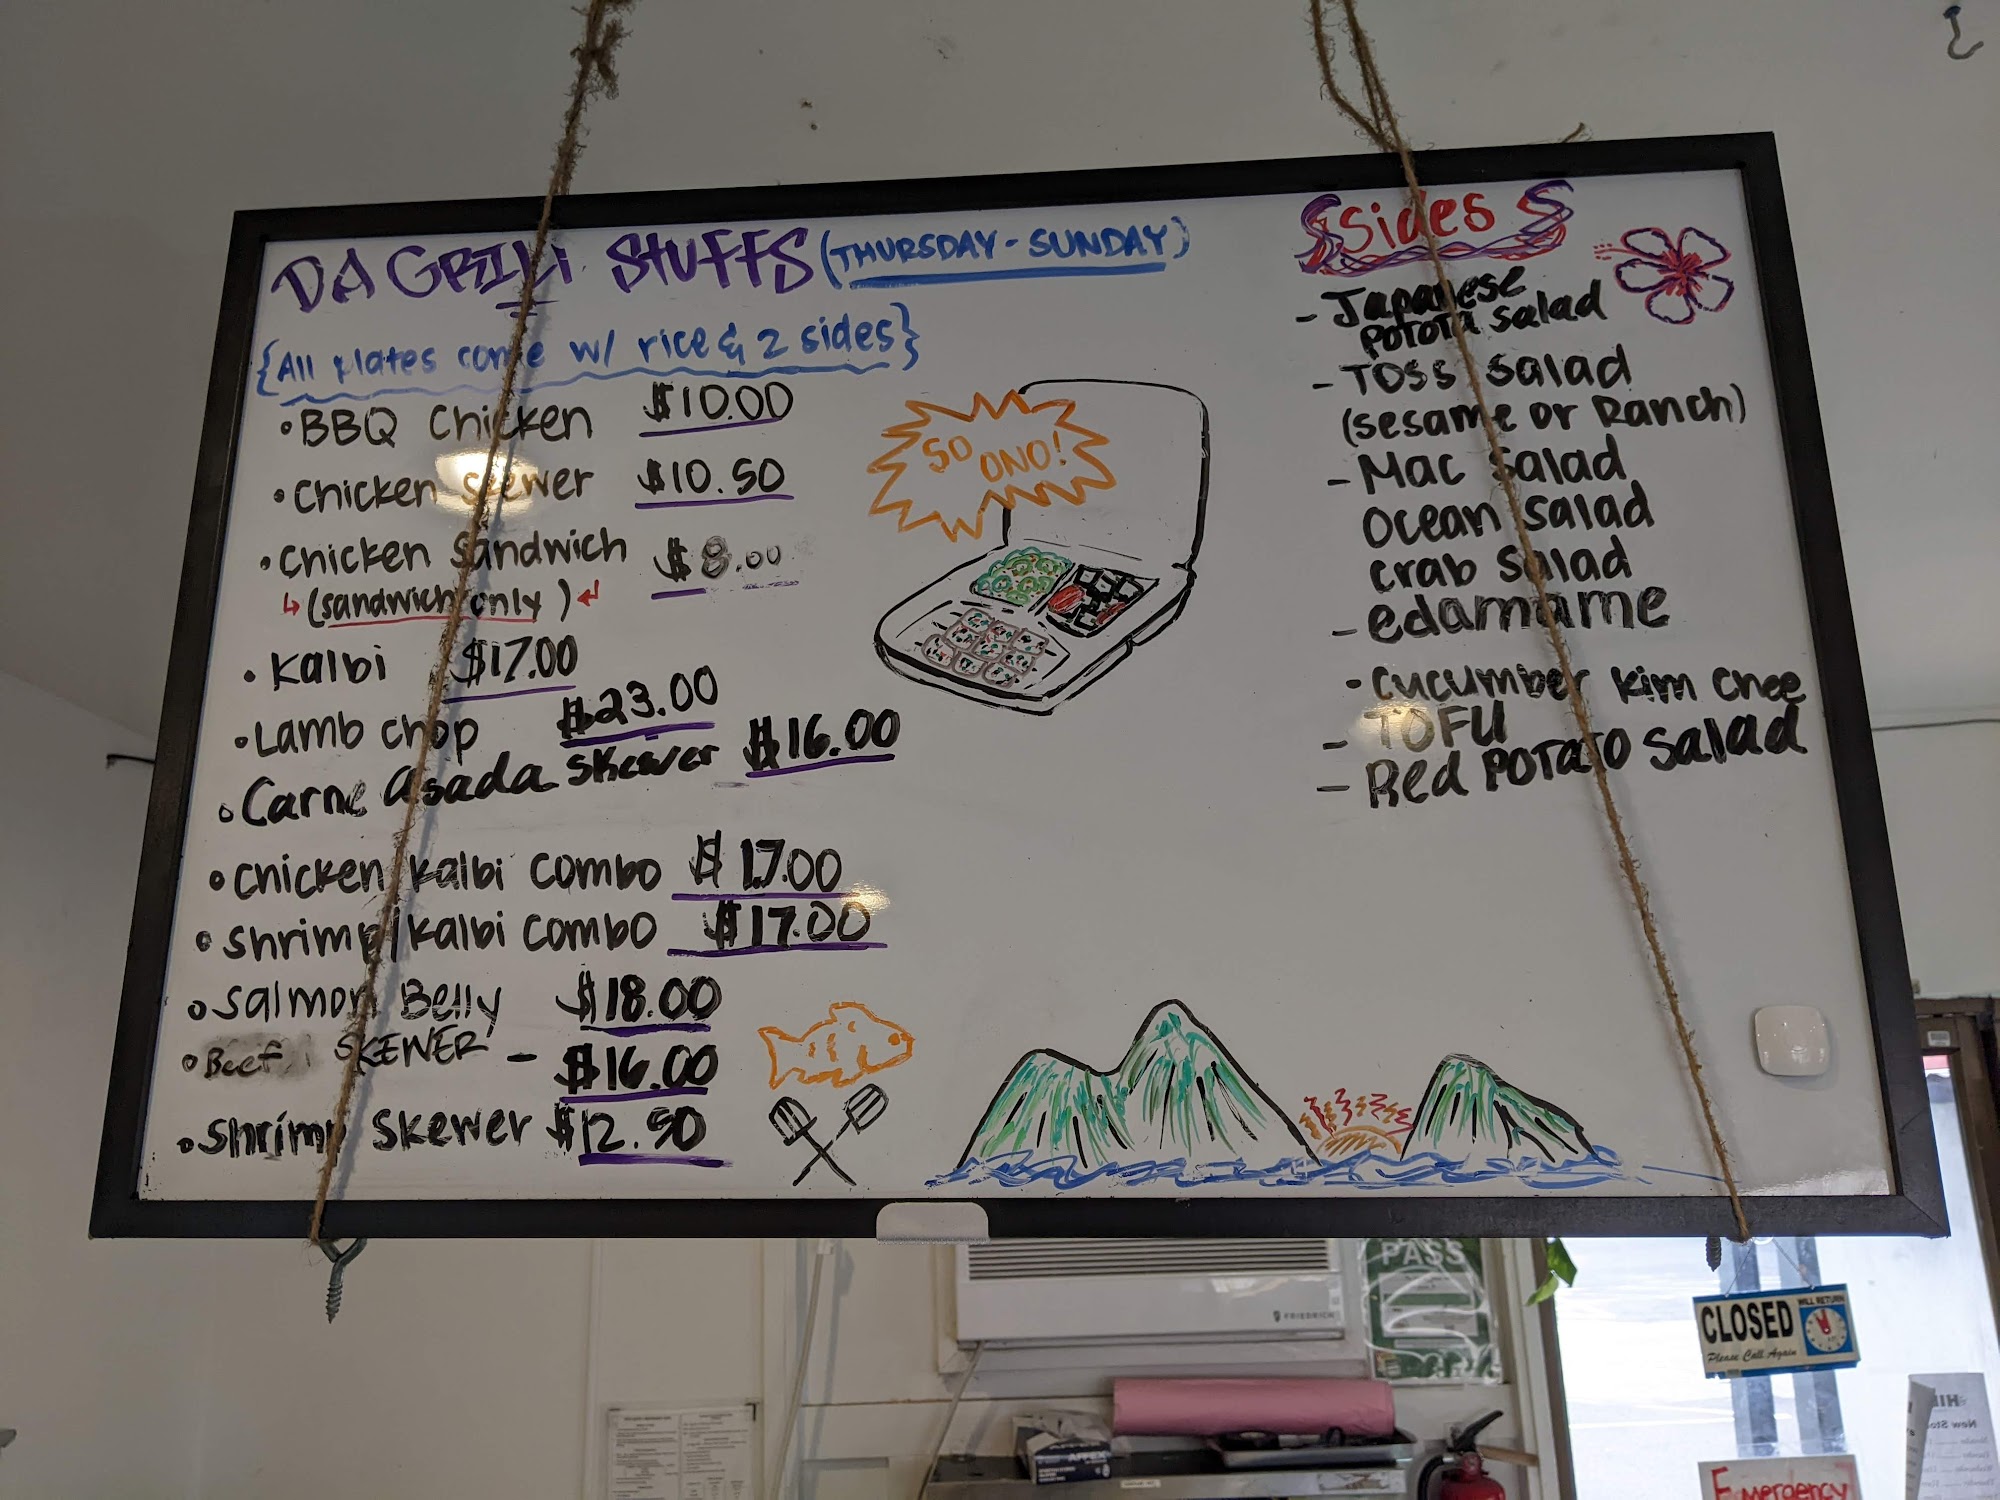 DA GRILL STUFFS (THURSDAY - SUNDAY)
{All plates come w/ rice & 2 sides}
• BBQ Chicken $10.00
• Chicken skewer $10.50
• Chicken Sandwich $8.00
↳ (sandwich only) ↲
• Kalbi $17.00
• Lamb chop $23.00
• Carne Asada Skewer $16.00
• Chicken/Kalbi Combo $17.00
• Shrimp/Kalbi Combo $17.00
• Salmon Belly $18.00
• Beef SKEWER - $16.00
• Shrimp Skewer $12.50
SO ONO!
Sides
- Japanese
Potota Salad
- TOSS Salad
(sesame or Ranch)
- Mac Salad
Ocean Salad
Crab Salad
- edamame
- Cucumber Kim Chee
- TOFU
- Red POTATO Salad
PASS
FRIEDRICH
CLOSED
WILL RETURN
Please Call Again
Emergency